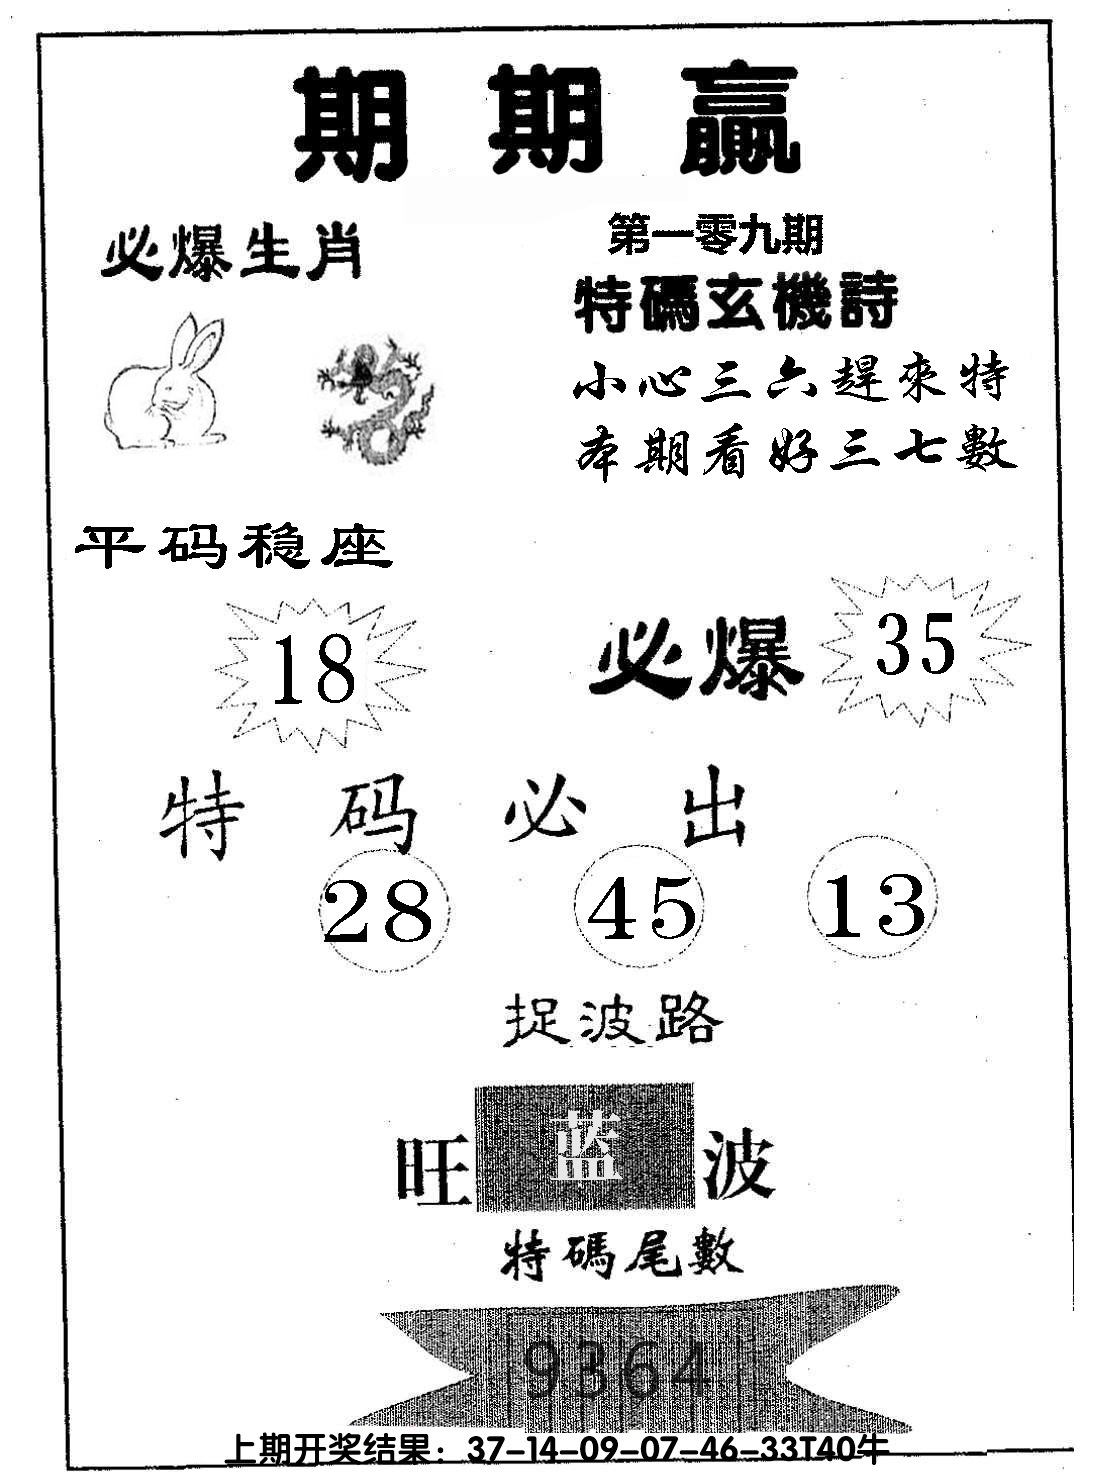 期期赢
必爆生肖
第一零九期
特碼玄機詩
小心三六趕來特
本期看好三七數
平码稳座
18
必爆
35
特码必出
28 45 13
捉波路
旺蓝波
特碼尾數
9364
上期开奖结果：37-14-09-07-46-33T40牛